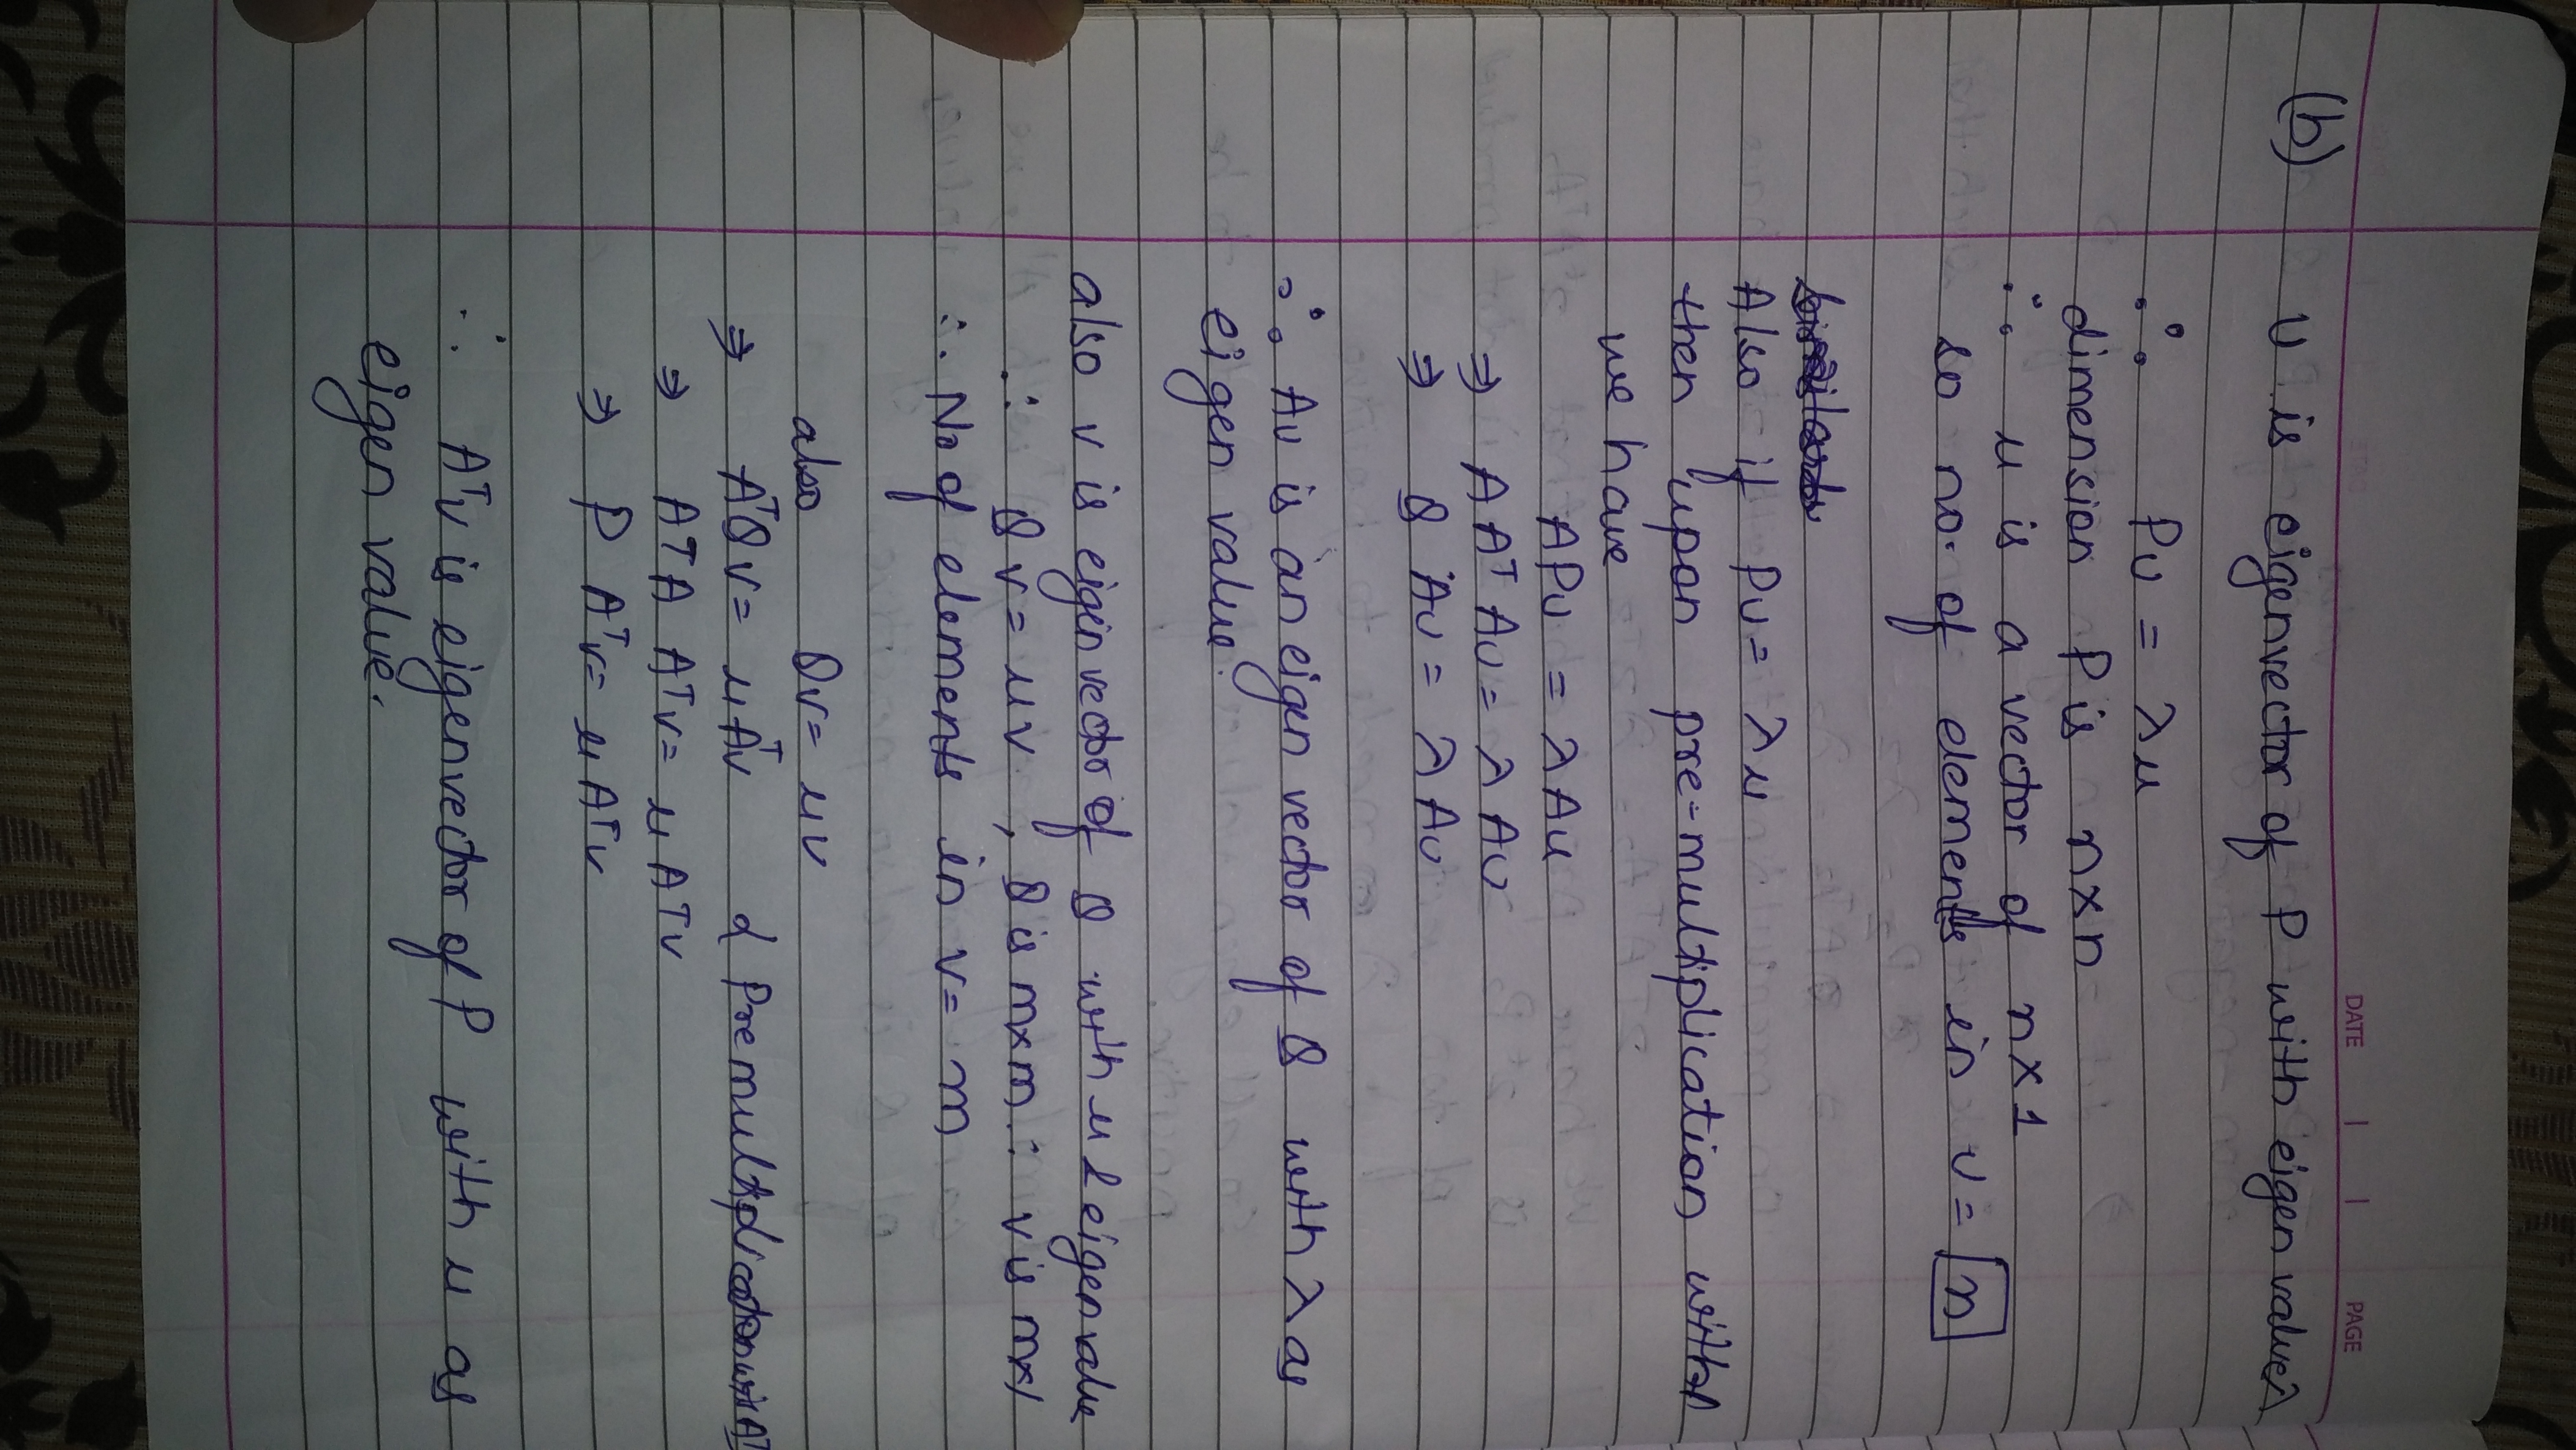 DATE PAGE
(b) u is eigenvector of P with eigen value λ
∴ Pu = λu
dimension P is n×n
∴ u is a vector of n×1
so no. of elements in u = n
Also if Pu = λu
then upon pre-multiplication with A
we have
APu = λAu
⇒ AAᵀAu = λAu
⇒ Q Au = λAu
∴ Au is an eigen vector of Q with λ as
eigen value.
also v is eigen vector of Q with μ eigen value
∴ Qv = μv, Q is m×m ∴ v is m×1
∴ No of elements in v = m
also Qv = μv
⇒ AᵀQv = μAᵀv d Premultiplication with Aᵀ
⇒ AᵀA Aᵀv = μ Aᵀv
⇒ P Aᵀv = μ Aᵀv
∴ Aᵀv is eigenvector of P with μ as
eigen value.